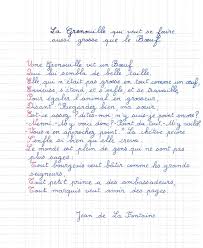 La Grenouille qui veut se faire
aussi grosse que le Bœuf
Une Grenouille vit un Bœuf
Qui lui sembla de belle taille.
Elle qui n'était pas grosse en tout comme un œuf,
Envieuse s'étend, et s'enfle, et se travaille
Pour égaler l'animal en grosseur,
Disant "Regardez bien ma sœur,
Est-ce assez ? dites-moi : n'y suis-je point encore ?
Nenni. M'y voici donc ? Point du tout. M'y voilà ?
Vous n'en approchez point." La chétive pécore
S'enfla si bien qu'elle creva.
Le monde est plein de gens qui ne sont pas
plus sages.
Tout bourgeois veut bâtir comme les grands
seigneurs,
Tout petit prince a des ambassadeurs,
Tout marquis veut avoir des pages.
Jean de La Fontaine